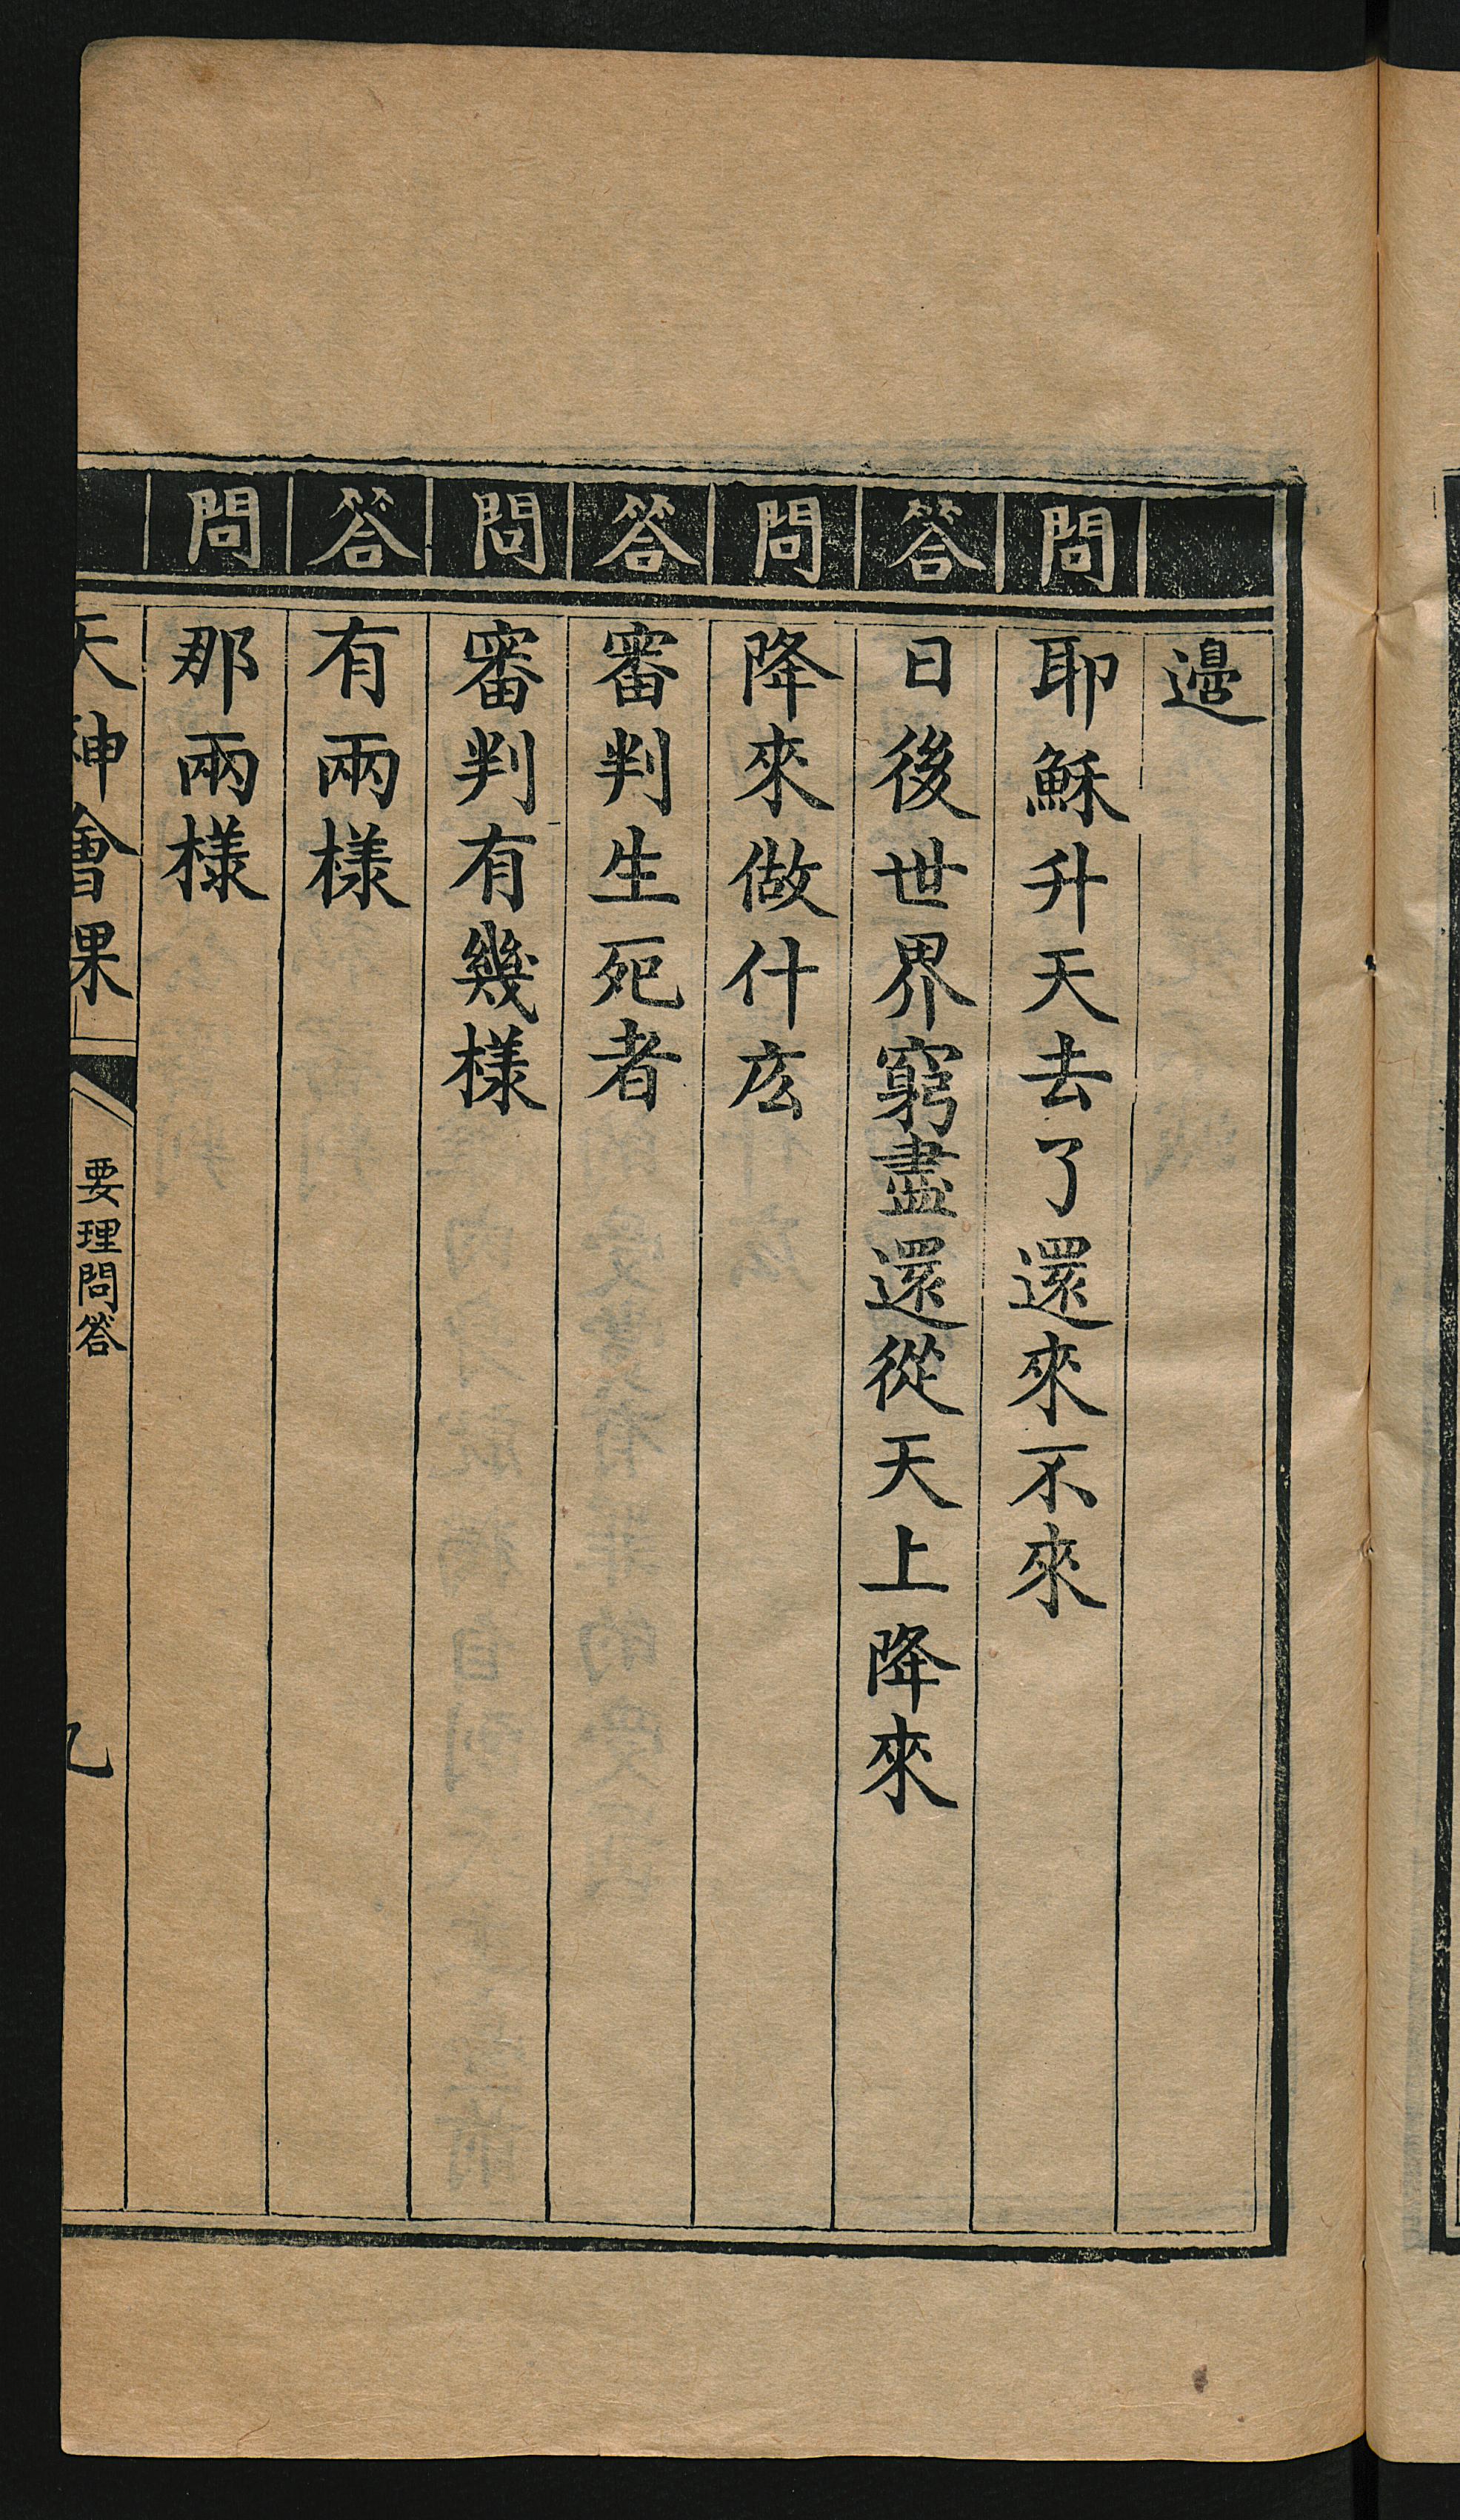 邉
問 耶穌升天去了還來不來
答 日後世界窮盡還從天上降來
問 降來做什庅
答 審判生死者
問 審判有幾樣
答 有兩樣
問 那兩樣
天神會果 要理問答 九